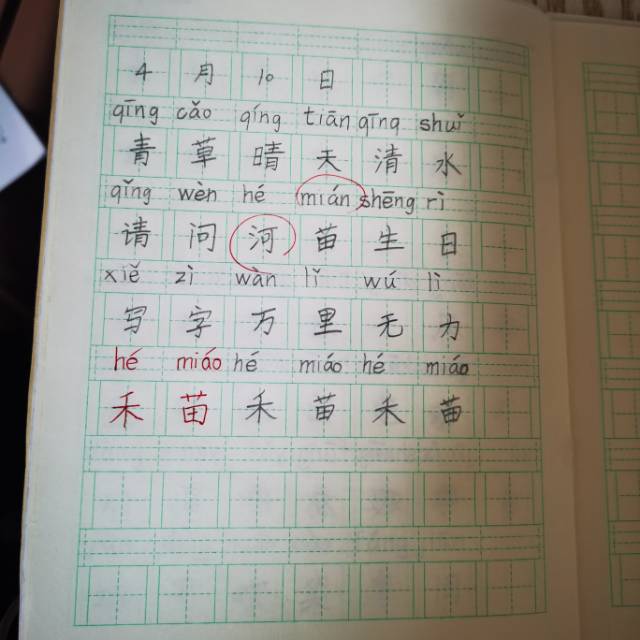 4 月 10 日
qīng cǎo qíng tiān qīng shuǐ
青 草 晴 天 清 水
qǐng wèn hé mián shēng rì
请 问 河 苗 生 日
xiě zì wàn lǐ wú lì
写 字 万 里 无 力
hé miáo hé miáo hé miáo
禾 苗 禾 苗 禾 苗